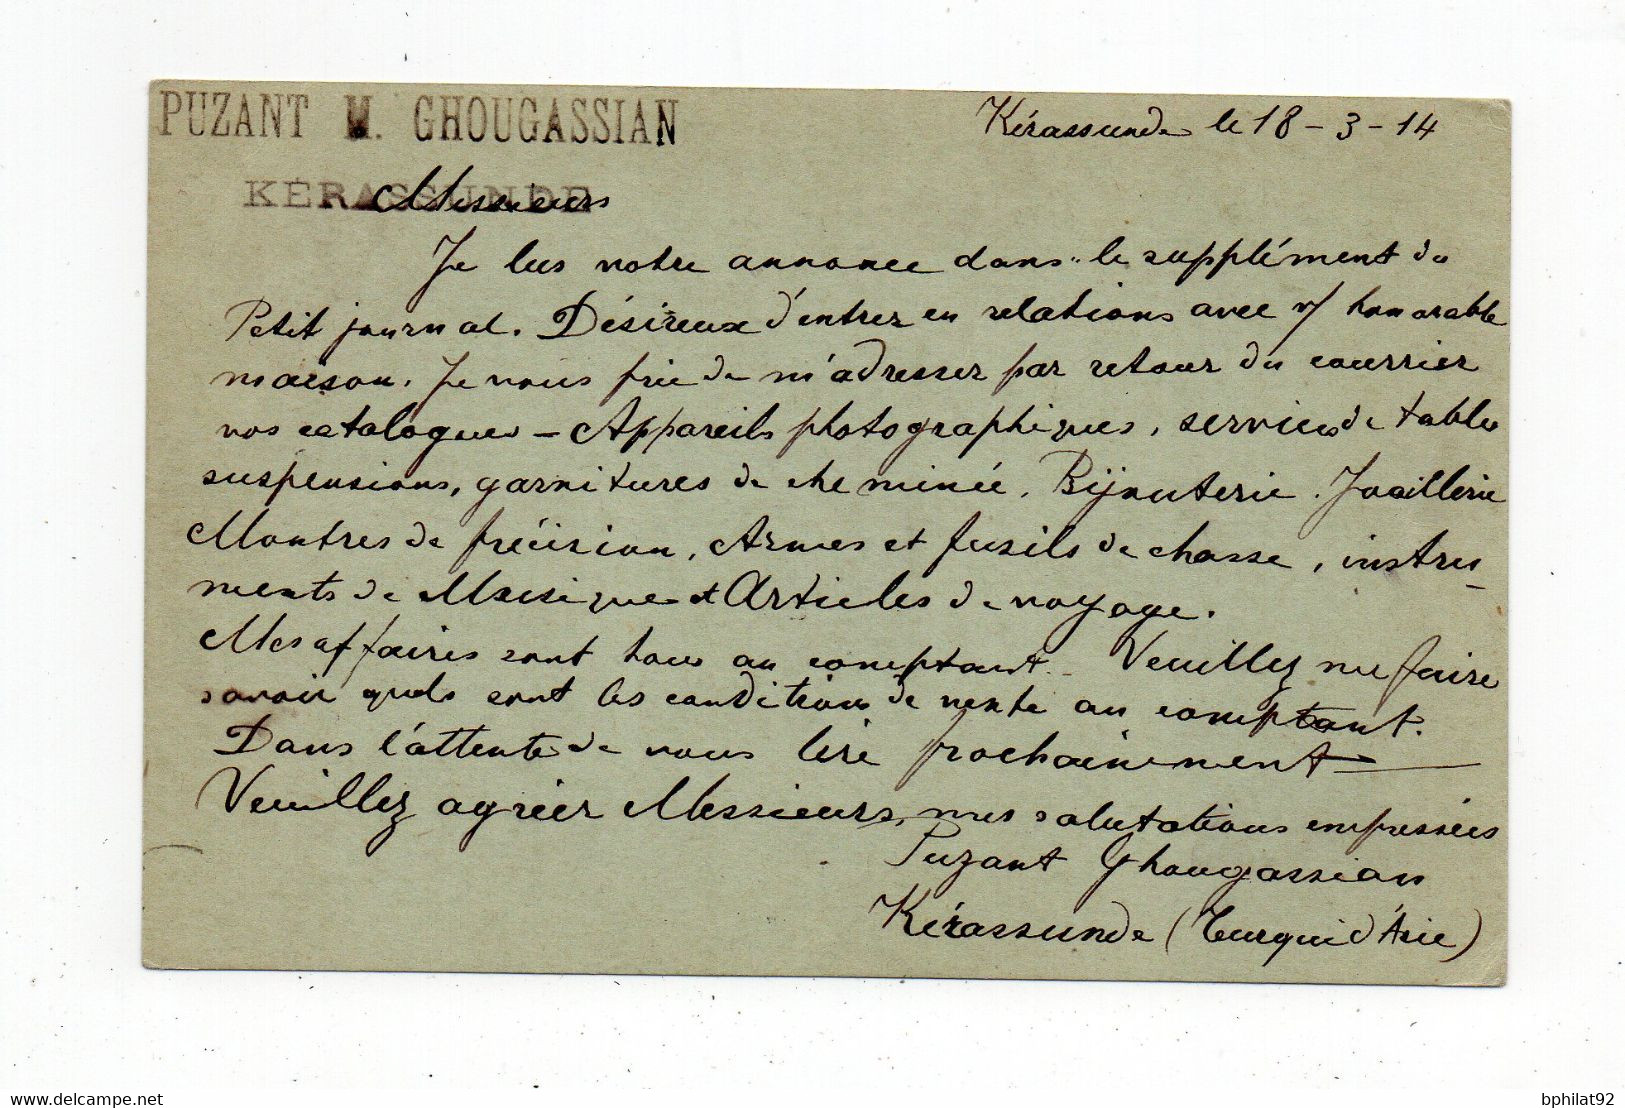 PUZANT M. GHOUGASSIAN
KÉRASSUNDE
Kérassunde le 18-3-14
Messieurs
Je lus votre annonce dans le supplément du
Petit journal. Désireux d'entrer en relations avec v/ honorable
maison. Je vous prie de m'adresser par retour du courrier
vos catalogues - Appareils photographiques, services de table
suspensions, garnitures de cheminée. Bijouterie. Joaillerie
Montres de précision, Armes et fusils de chasse, instru-
ments de Musique et Articles de voyage.
Mes affaires sont tous au comptant. Veuillez me faire
savoir quels sont les conditions de vente au comptant.
Dans l'attente de vous lire prochainement
Veuillez agréer Messieurs, mes salutations empressées
Puzant Ghougassian
Kérassunde (Turquie d'Asie)
delcampe.net
bphilat92